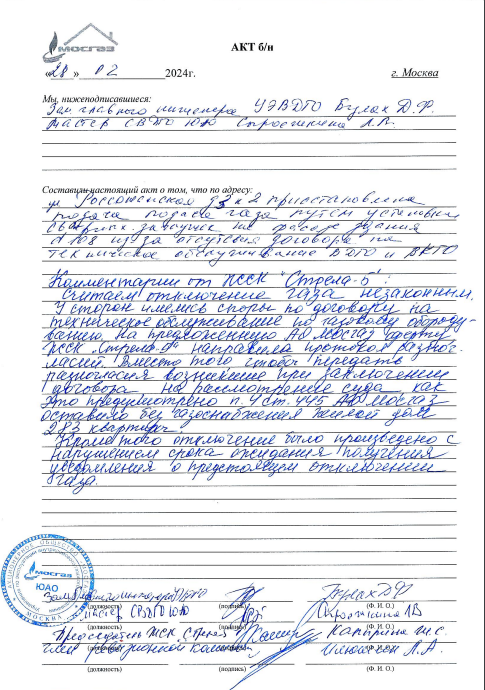 МОСГАЗ
АКТ б/н
«28» 02 2024г. г. Москва
Мы, нижеподписавшиеся:
Зам. главного инженера УЭВДГО Булах Д.Ф.
мастер СВДГО ЮАО Сыроежкина Л.В.
Составили настоящий акт о том, что по адресу:
ул. Россошанская д3 к2 приостановлена
подача газа путем установки
сварных заглушек на фасаде здания
из за отсутствия договора на
техническое обслуживание ВДГО и ВКГО
Комментарии от ЖСК "Стрела-5":
Считаем отключение газа незаконным.
У сторон имелись споры по договору на
техническое обслуживание по газовому оборудо-
ванию. На предложенную АО Мосгаз оферту
ЖСК "Стрела-5" направила протокол разног-
ласий. Вместо того чтобы передать
разногласия возникшие при заключении
договора на рассмотрение суда как
это предусмотрено п. 4 ст. 445 АО Мосгаз
оставило без газоснабжения жилой дом
283 квартир.
Кроме того отключение было произведено с
нарушением срока ожидания получения
уведомления о предстоящем отключении
газа.
МОСГАЗ
ЮАО
МОСКВА
Зам. главного инженера УЭВДГО Булах Д.Ф.
(должность) (подпись) (Ф. И. О.)
мастер СВДГО ЮАО Сыроежкина Л.В.
(должность) (подпись) (Ф. И. О.)
Председатель ЖСК Стрела-5
(должность) (подпись) (Ф. И. О.)
член ревизионной комиссии Л.А.
(должность) (подпись) (Ф. И. О.)